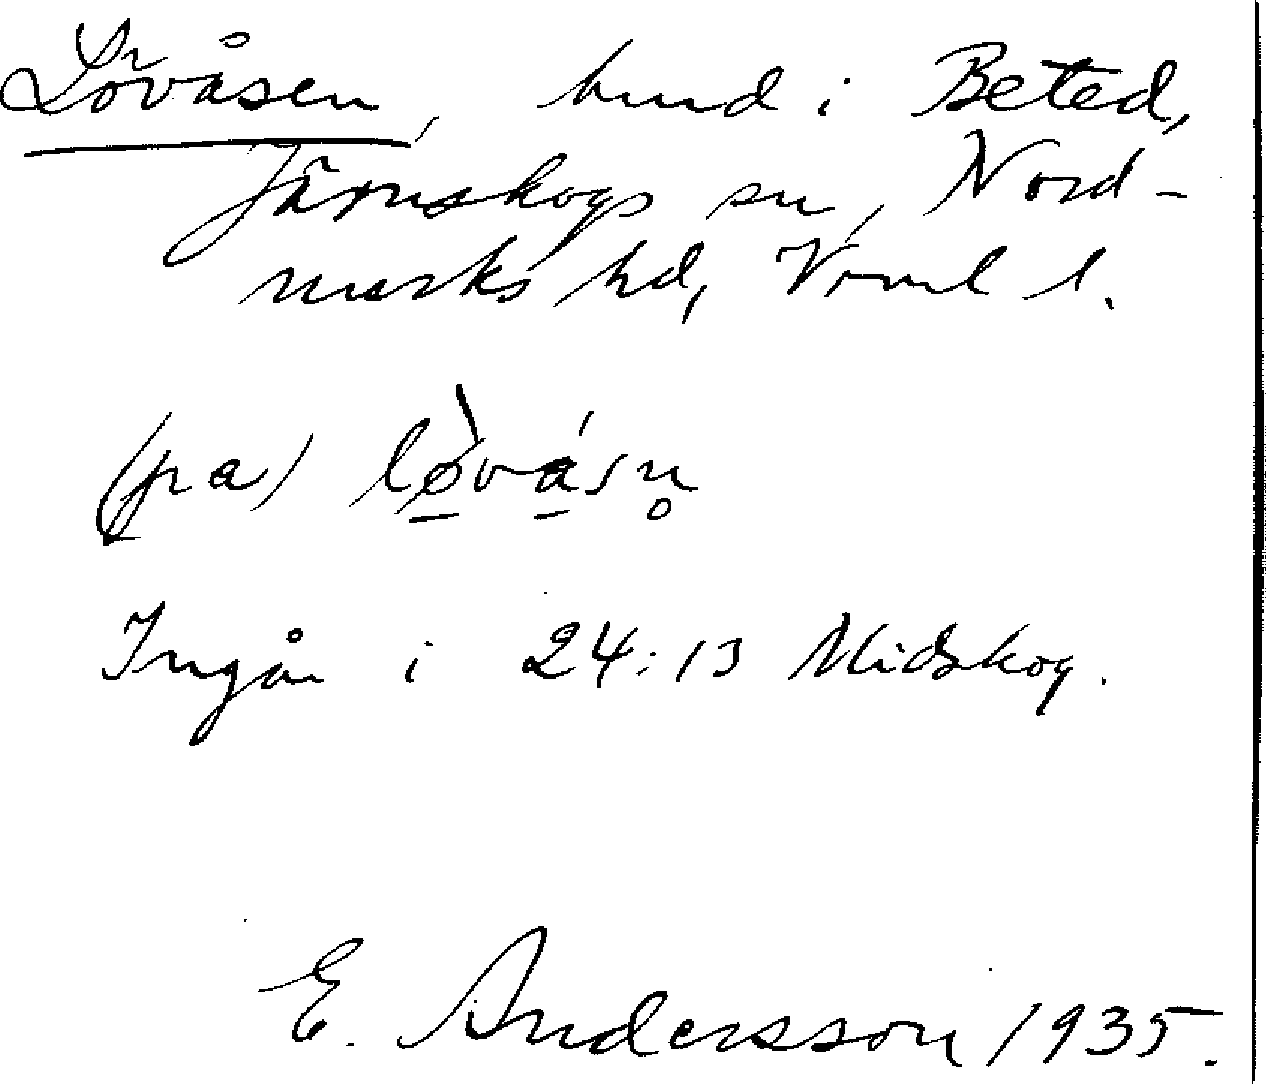 Lövåsen, hmd i Beted,
Järnskogs sn, Nord-
marks hd, Vrml l.
(pa) lø̠̀vá̠sn̥
Ingår i 24:13 Midskog.
E. Andersson 1935.